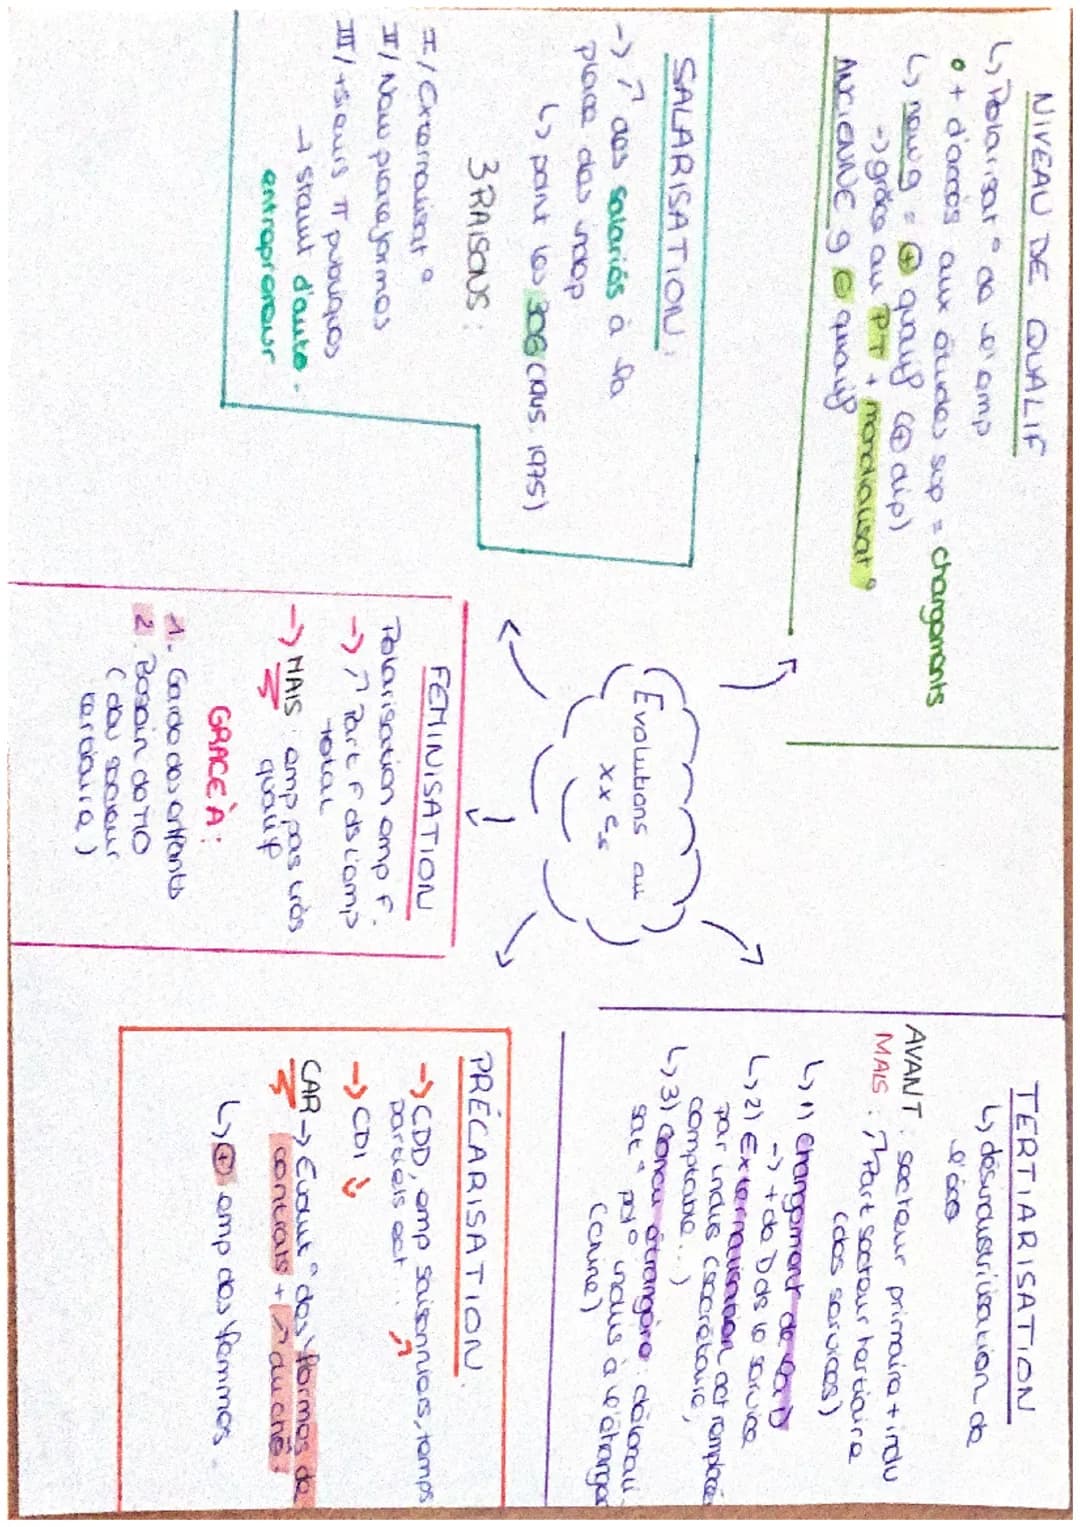 NIVEAU DE QUALIF
↳ Polarisat° de l'emp
• + d'accès aux études sup = changements
↳ nouv g = ⊕ qualif (⊕ dip)
-> grâce au PT + mondialisat°
ANCIENNE g ⊖ qualif
SALARISATION :
-> ↗ des salariés à la
place des indep
↳ point les 30G (plus 1975)
3 RAISONS :
I/ Externalisat°
II/ Nouv plateformes
III/ +sieurs π publiques
→ statut d'auto-
entrepreneur
Evolutions au
XX e s
TERTIARISATION
↳ désindustrialisation de
l'éco
AVANT : secteur primaire + indu
MAIS : ↗ Part secteur tertiaire
(des services)
↳ 1) changement de la D
-> + de D ds le service
↳ 2) Externalisation act remplacée
par indus (secrétaire,
comptable...)
↳ 3) Concu étrangère : délocali-
sat° pr° indus à l'étranger
(chine)
FÉMINISATION
Polarisation emp F.
-> ↗ Part F ds l'emp
total
-> MAIS : emp pas très
qualif
GRACE À :
1. Garde des enfants
2. Besoin de MO
(du secteur
tertiaire)
PRÉCARISATION
-> CDD, emp saisonniers, temps
partiels ect... ↗
-> CDI ↘
CAR -> Evolut° des formes de
contrats + ↗ du chô
↳ ⊕ emp des femmes